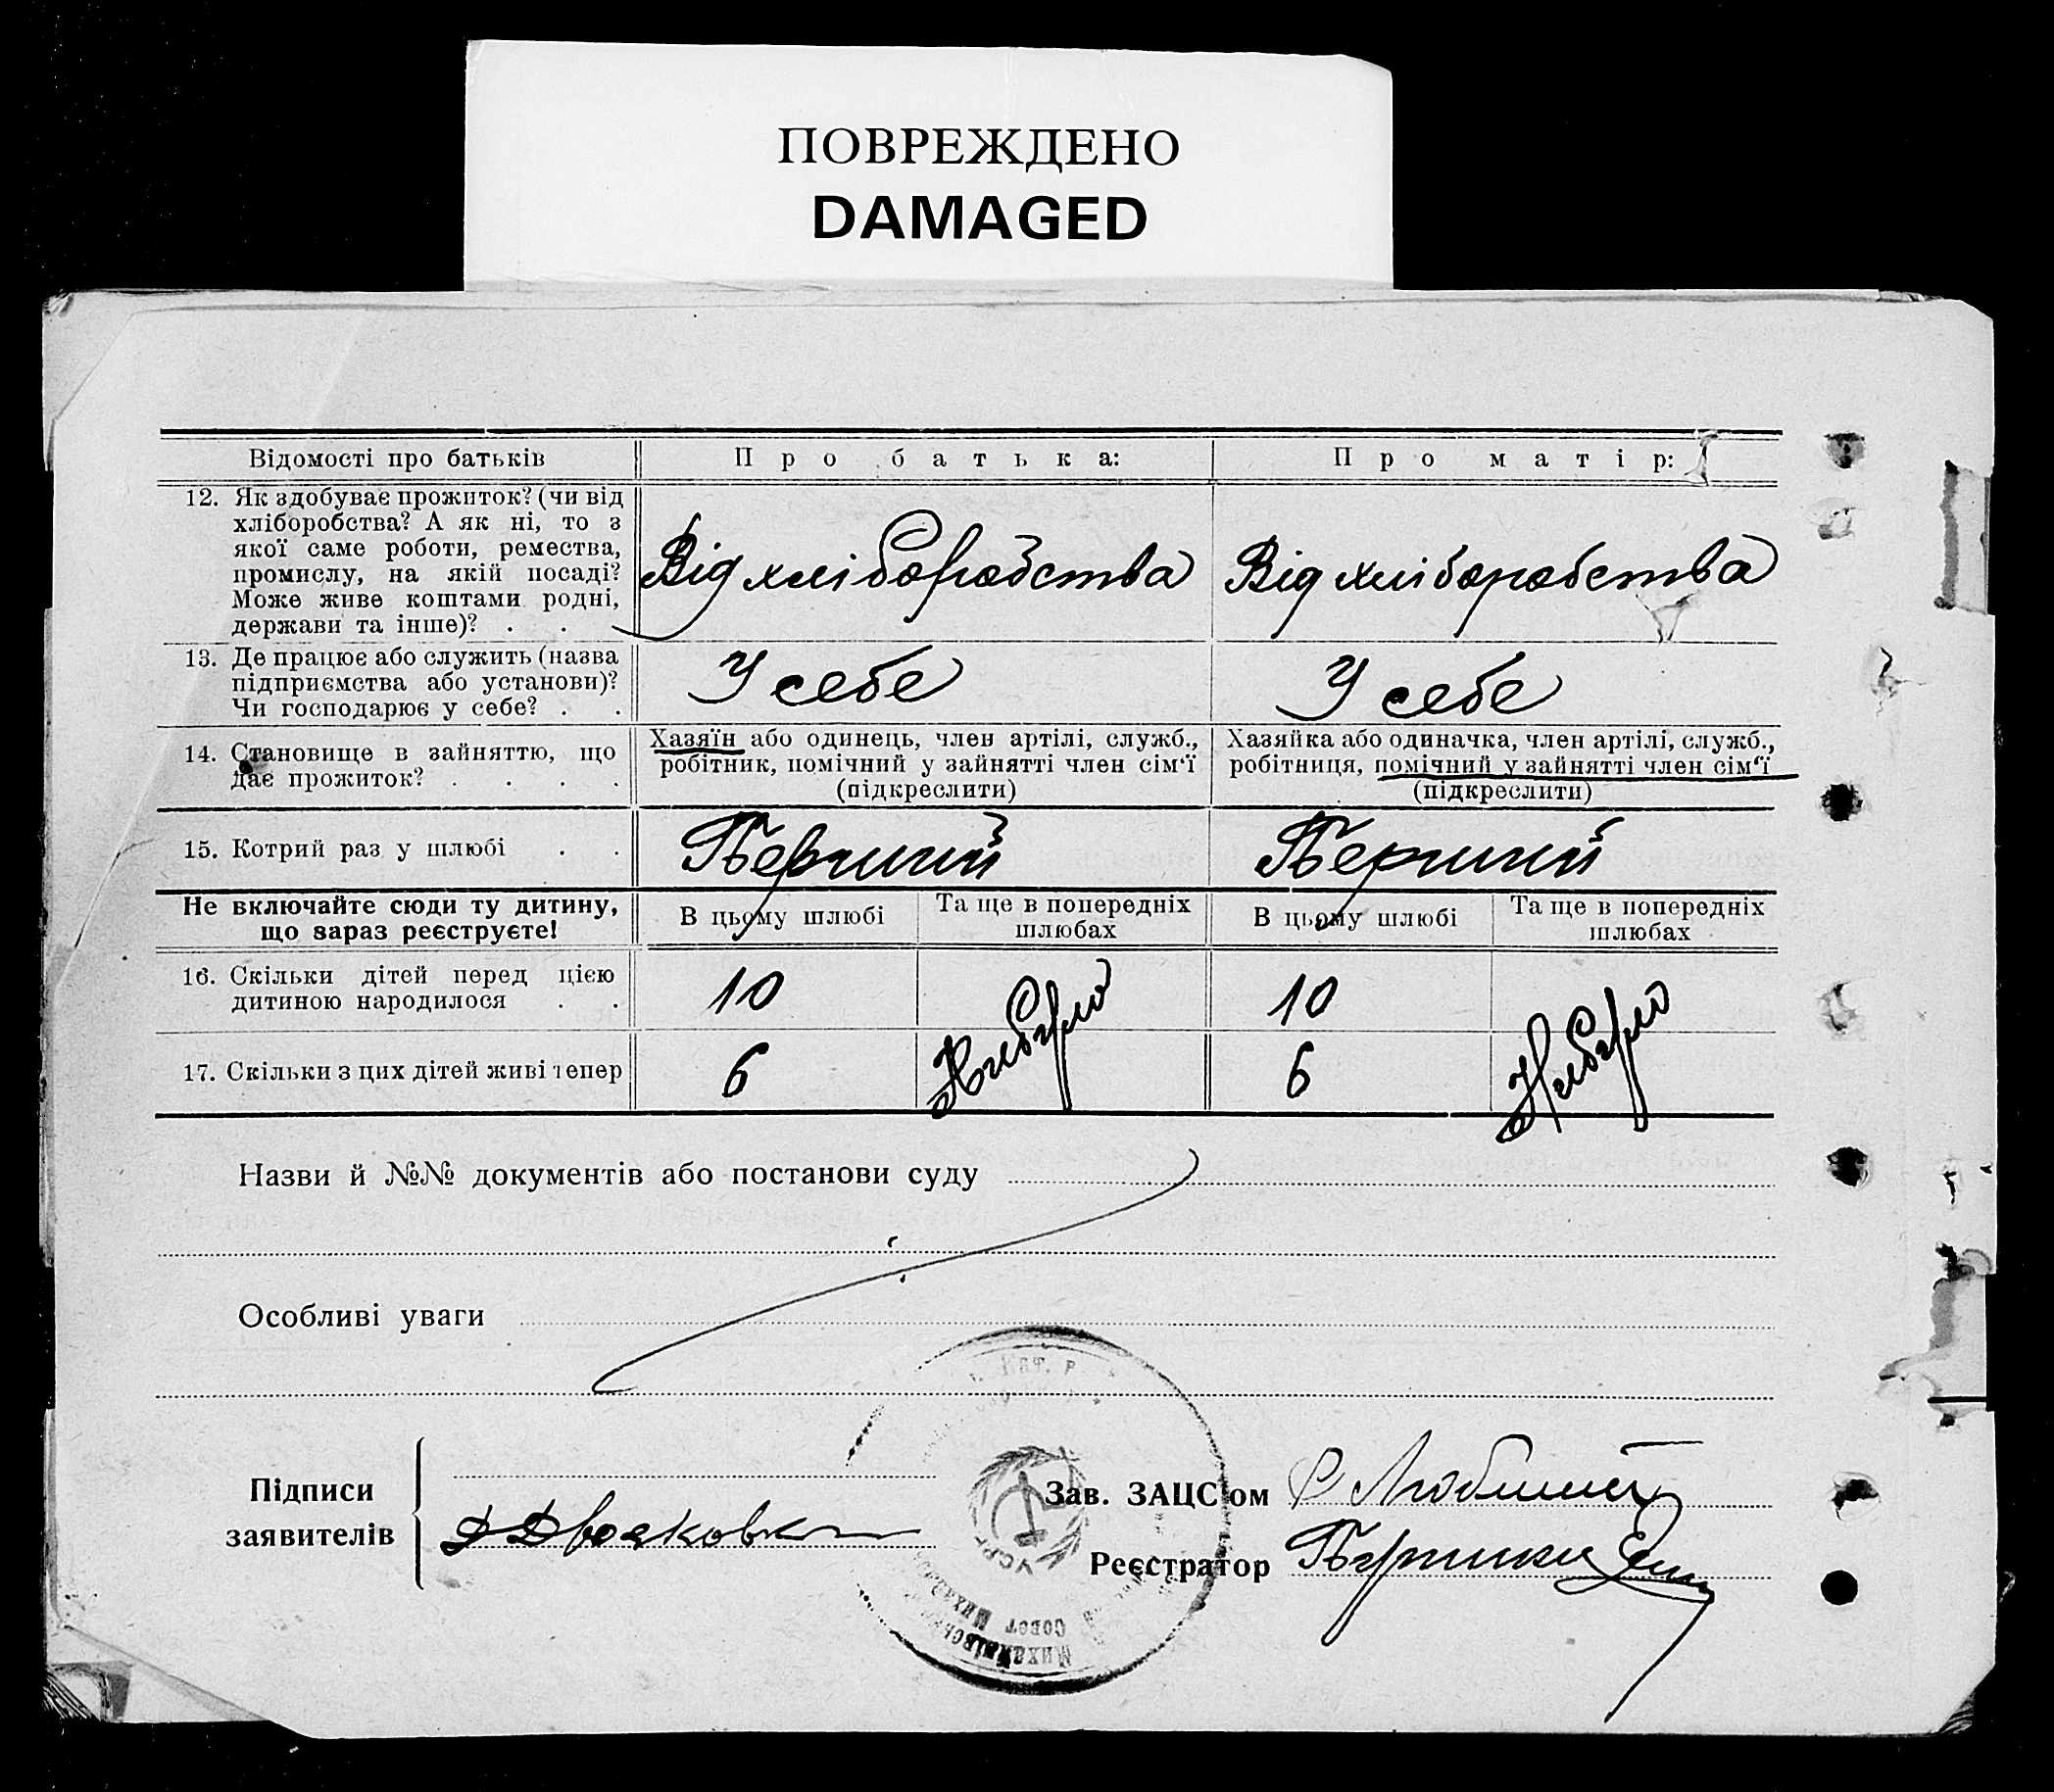 ПОВРЕЖДЕНО
DAMAGED
Відомості про батьків
Про батька:
Про матір:
12. Як здобуває прожиток? (чи від
хліборобства? А як ні, то з
якої саме роботи, ремества,
промислу, на якій посаді?
Може живе коштами родні,
держави та інше)? . .
Від хліборобства
Від хліборобства
13. Де працює або служить (назва
підприємства або установи)?
Чи господарює у себе? . .
У себе
У себе
14. Становище в зайняттю, що
дає прожиток? . . . .
Хазяїн або одинець, член артілі, служб.,
робітник, помічний у зайнятті член сім‘ї
(підкреслити)
Хазяйка або одиначка, член артілі, служб.,
робітниця, помічний у зайнятті член сім‘ї
(підкреслити)
15. Котрий раз у шлюбі . .
Перший
Перший
Не включайте сюди ту дитину,
що зараз реєструєте!
В цьому шлюбі
Та ще в попередніх
шлюбах
В цьому шлюбі
Та ще в попередніх
шлюбах
16. Скільки дітей перед цією
дитиною народилося . .
10
Не було
10
Не було
17. Скільки з цих дітей живі тепер
6
6
Назви й №№ документів або постанови суду
Особливі уваги
Підписи
заявителів
Зав. ЗАЦС'ом
Реєстратор
УСРР